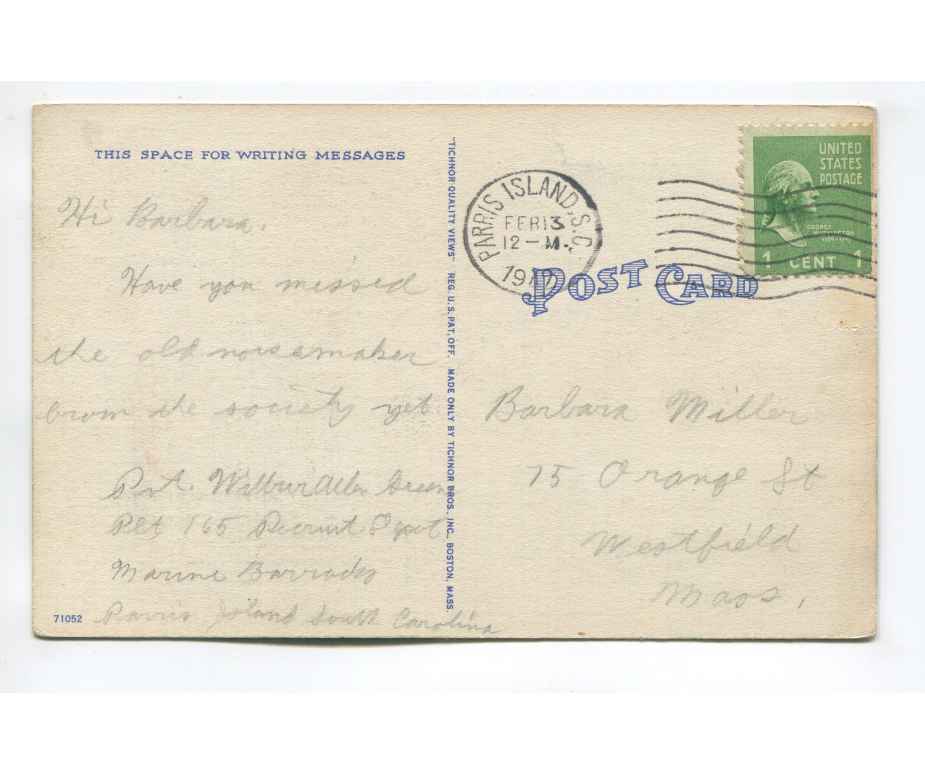 THIS SPACE FOR WRITING MESSAGES
Hi Barbara.
Have you missed
the old noisemaker
from the society yet
Pvt. Wilbur Allen Green
Plt 165 Recruit Depot
Marine Barracks
Parris Island South Carolina
71052
"TICHNOR QUALITY VIEWS" REG. U.S. PAT. OFF. MADE ONLY BY TICHNOR BROS., INC., BOSTON, MASS.
PARRIS ISLAND, S.C.
FEB 13
12 - M
UNITED
STATES
POSTAGE
GEORGE
WASHINGTON
1 CENT 1
POST CARD
Barbara Miller
75 Orange St
Westfield
Mass,